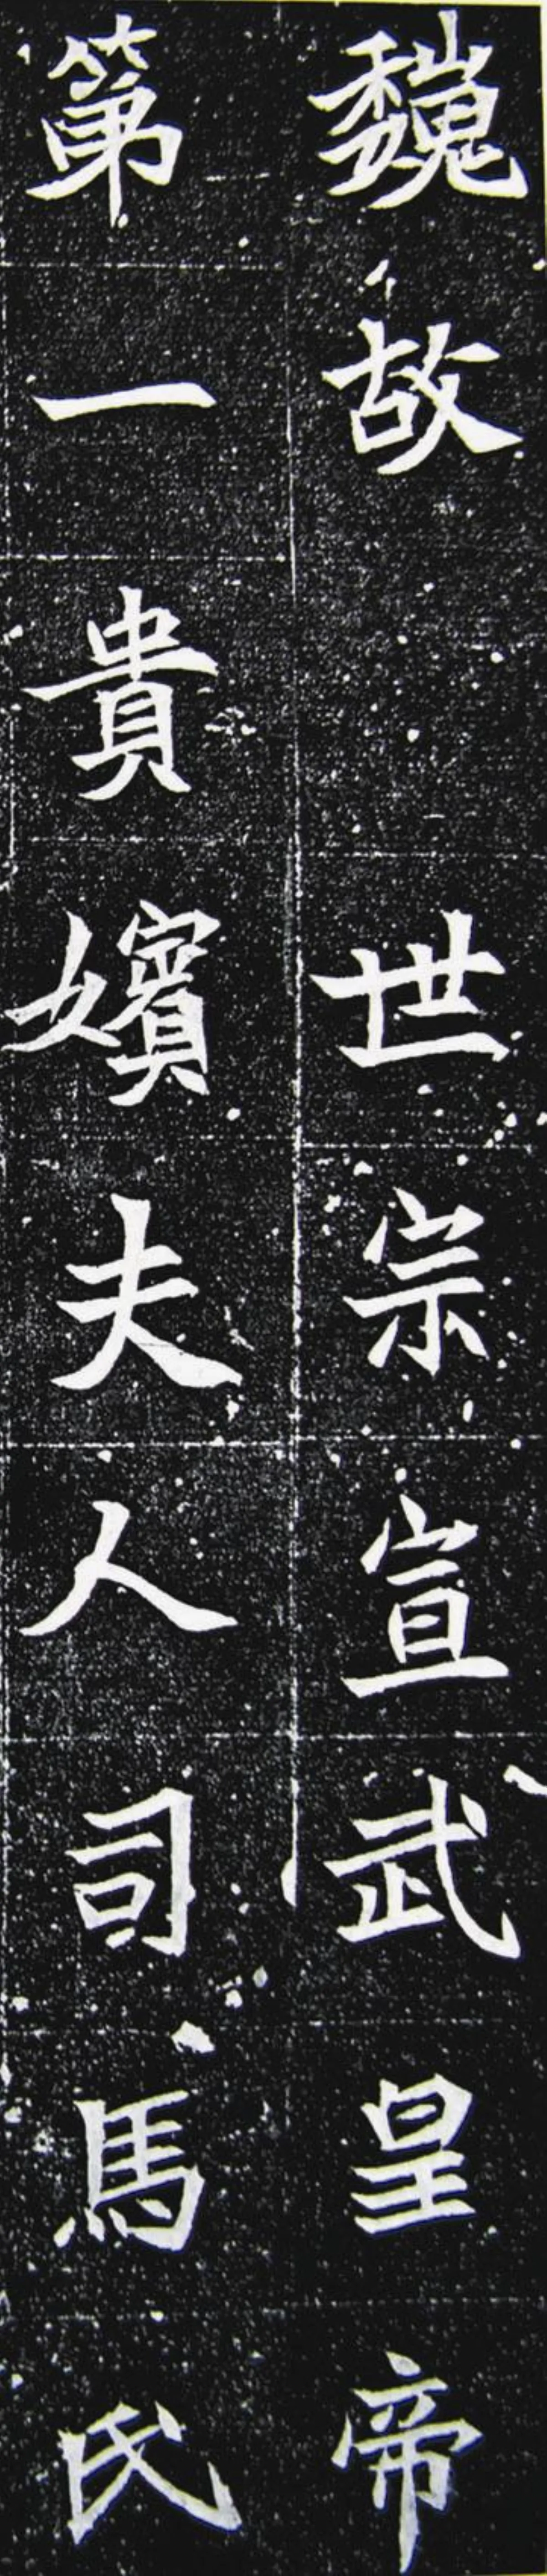 魏故　世宗宣武皇帝
第一貴嬪夫人司馬氏